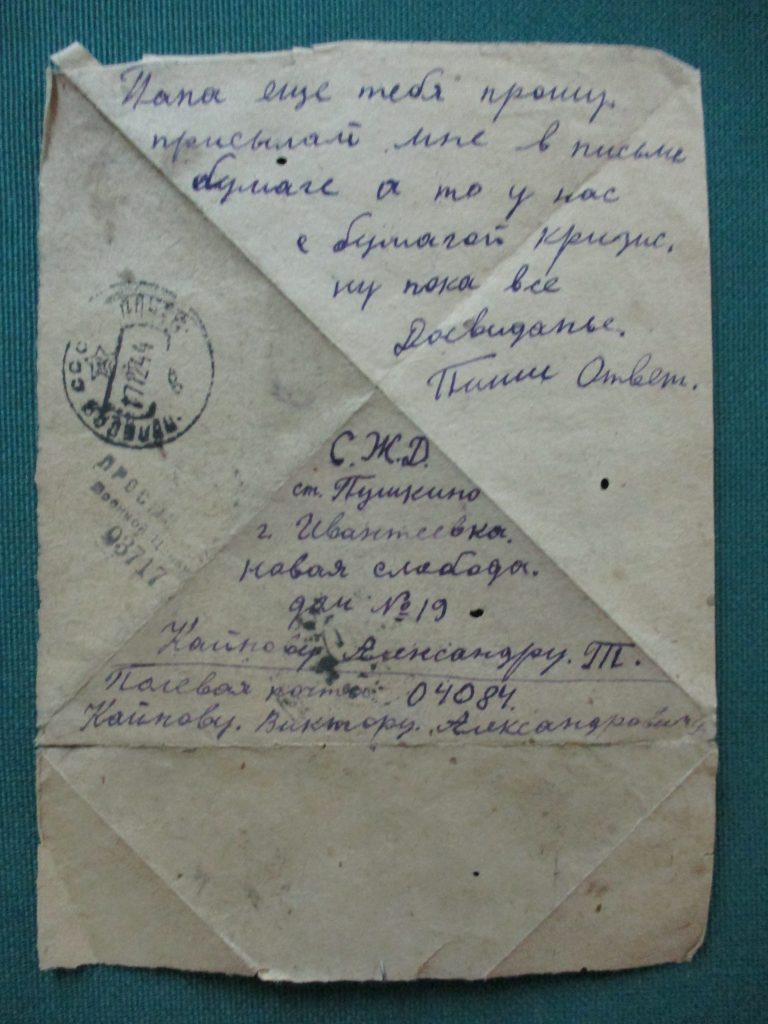 Папа еще тебя прошу.
присылай мне в письме
бумаге а то у нас
с бумагой кризис.
ну пока все
Досвиданье.
Пиши Ответ.
СССР
17 12 44
ПРОСМ
Военной Ц
03717
С.Ж.Д.
ст. Пушкино
г. Ивантеевка.
новая слобода.
дом № 19
Кайнову Александру. Т.
Полевая почта 04084.
Кайнову. Виктору. Александровичу